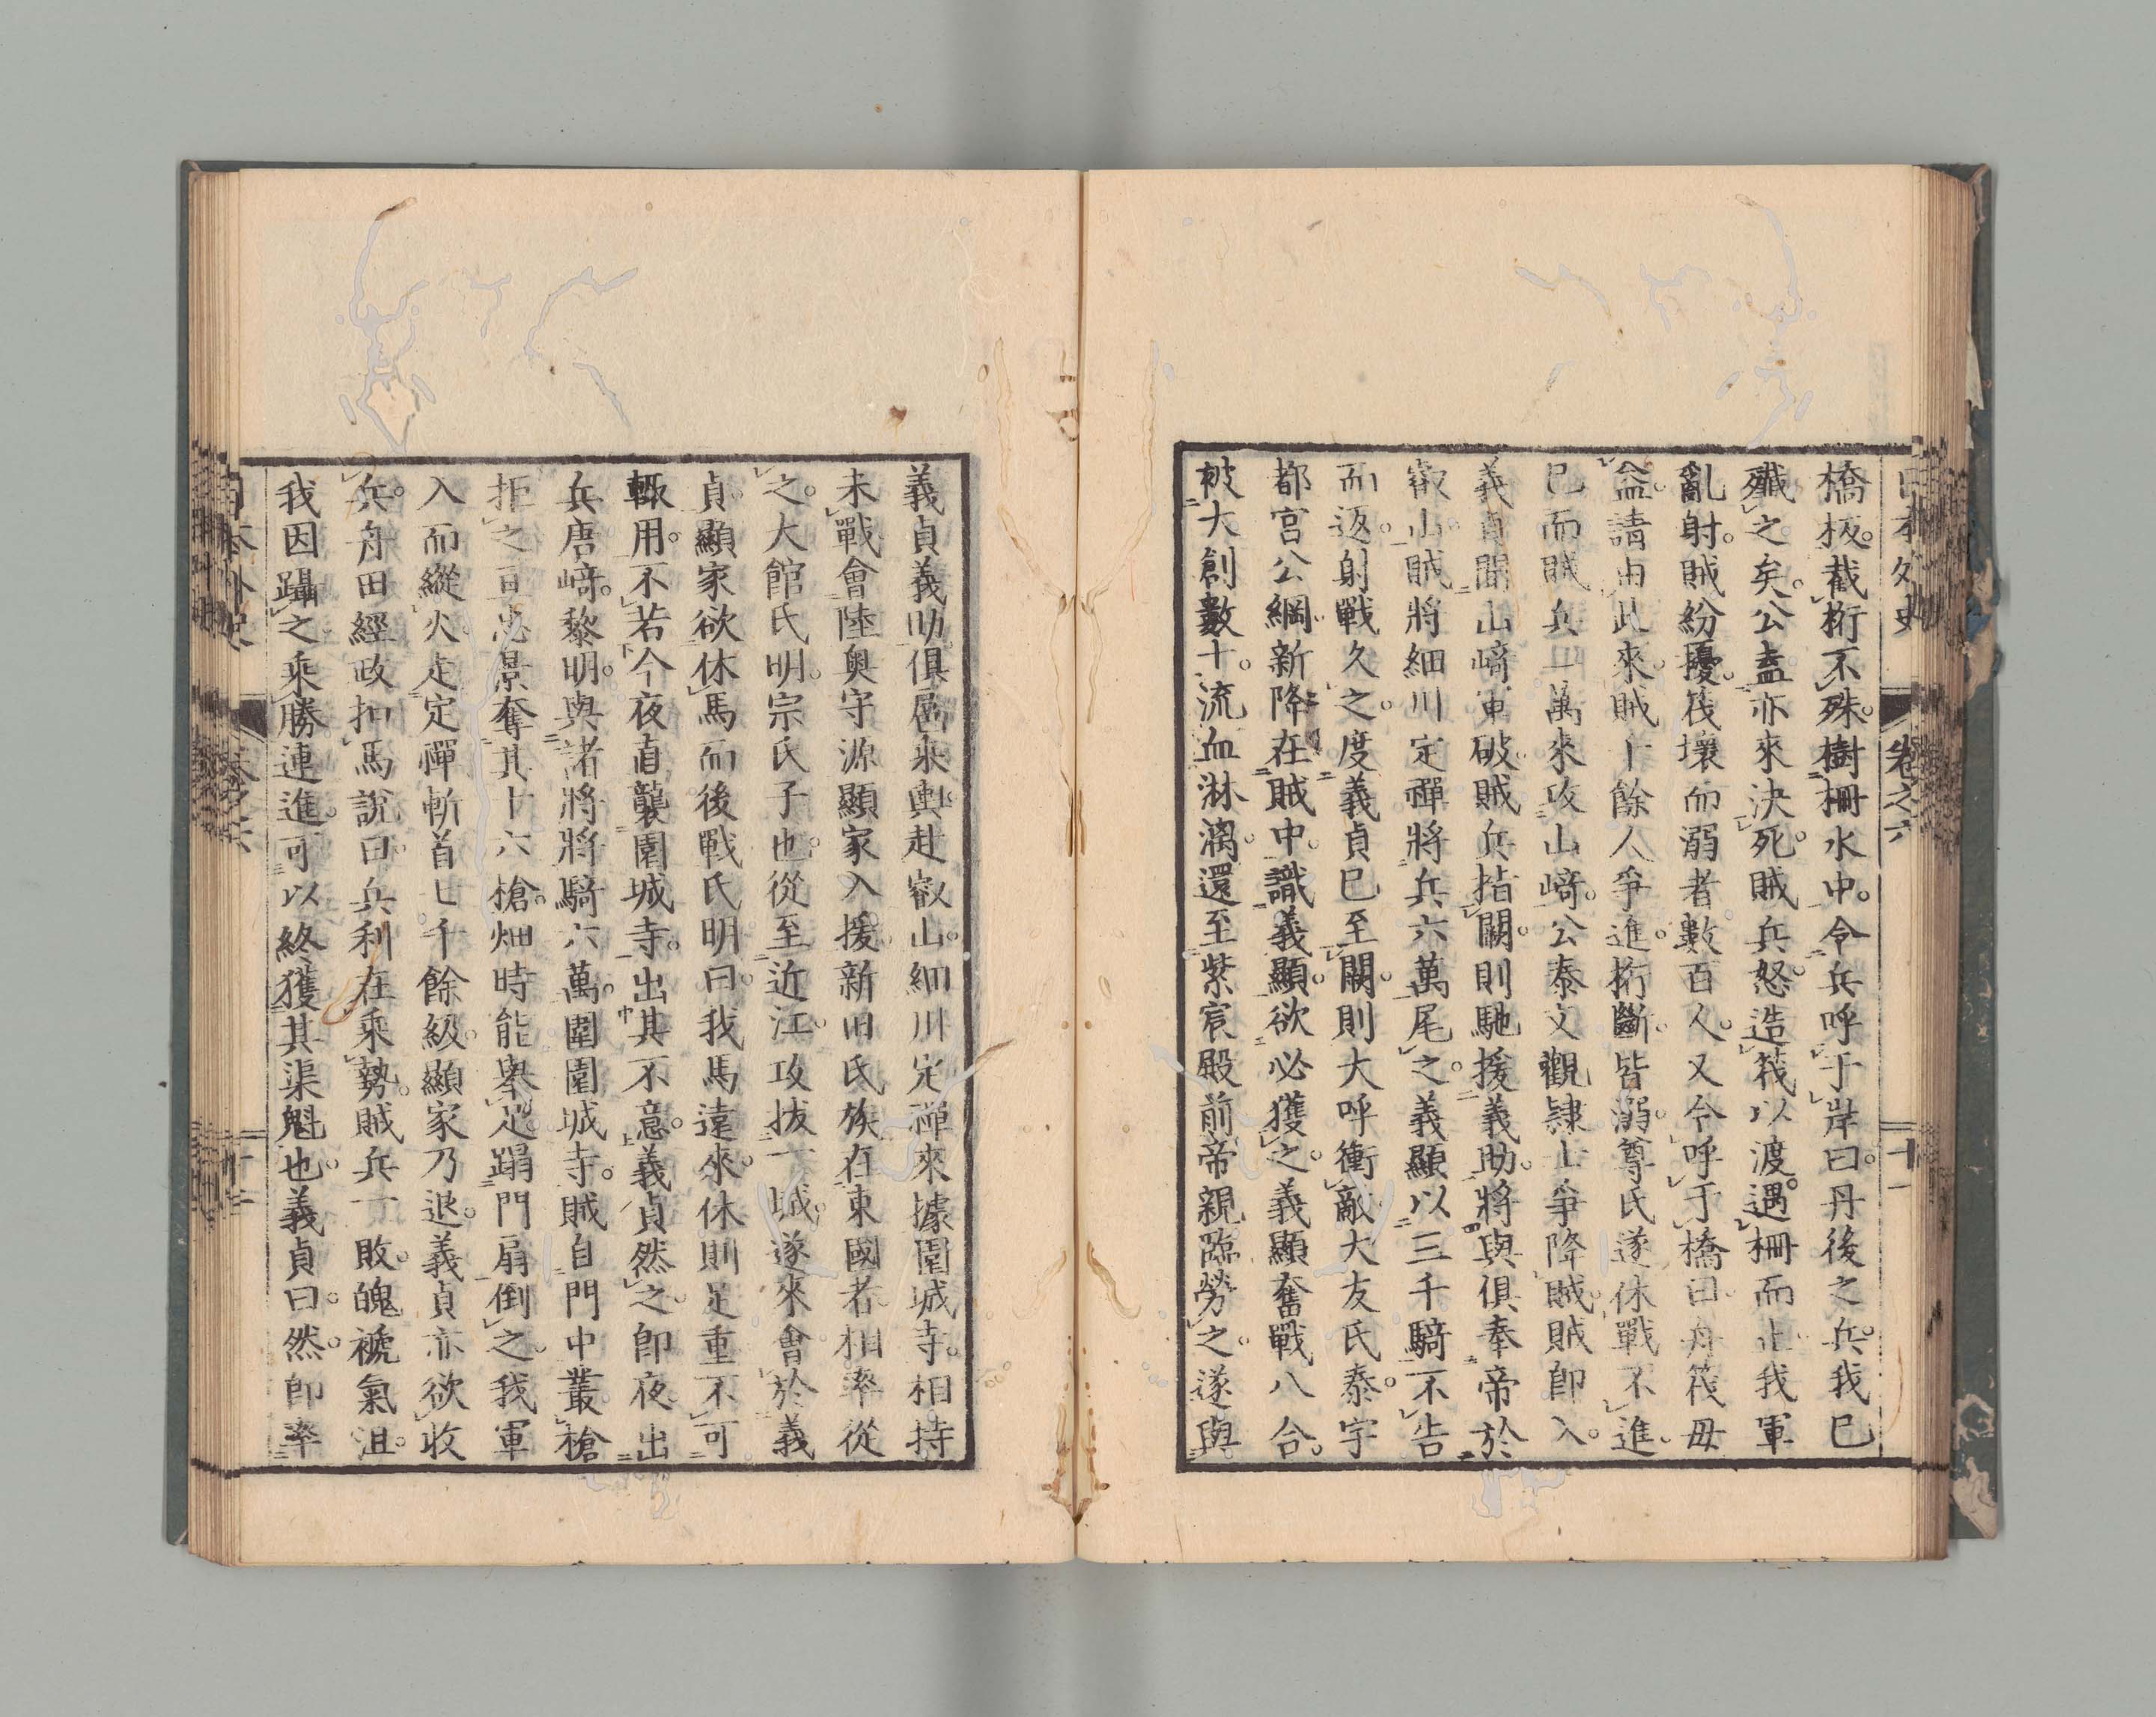 日本外史 卷之六 十一
橋板。截桁不殊。樹柵水中。令兵呼于岸曰。丹後之兵。我已
殲之矣。公盍亦來決死。賊兵怒。造筏以渡。遇柵而止。我軍
亂射。賊紛擾。筏壞而溺者數百人。又令呼于橋曰。舟筏毋
益。請由此來。賊十餘人爭進。桁斷。皆溺。尊氏遂休戰不進。
已而賊兵二萬來攻山﨑。公泰文觀隷士爭降賊。賊即入。
義貞聞山﨑軍破。賊兵指闕。則馳援義助。將與俱奉帝於
叡山。賊將細川定禪將兵六萬尾之。義顯以三千騎不告
而返。射戰久之。度義貞已至闕。則大呼衝敵。大友氏泰。宇
都宮公綱。新降在賊中。識義顯。欲必獲之。義顯奮戰八合。
被大創數十。流血淋漓。還至紫宸殿前。帝親臨勞之。遂與
義貞義助。俱扈乘輿。赴叡山。細川定禪來據園城寺。相持
未戰。會陸奧守源顯家入援。新田氏族在東國者。相率從
之。大館氏明。宗氏子也。從至近江。攻拔一城。遂來會於義
貞。顯家欲休馬而後戰。氏明曰。我馬遠來。休則足重。不可
輙用。不若今夜直襲園城寺。出其不意。義貞然之。即夜出
兵唐﨑。黎明。與諸將將騎六萬。圍園城寺。賊自門中叢槍
拒之。亘忠景奪其十六槍。畑時能舉足。蹋門扇倒之。我軍
入而縱火。走定禪。斬首七千餘級。顯家乃退。義貞亦欲收
兵。舟田經政扣馬說曰。兵利在乘勢。賊兵一敗。魄褫氣沮。
我因躡之。乘勝連進。可以終獲其渠魁也。義貞曰。然。即率
日本外史 卷之六 十二